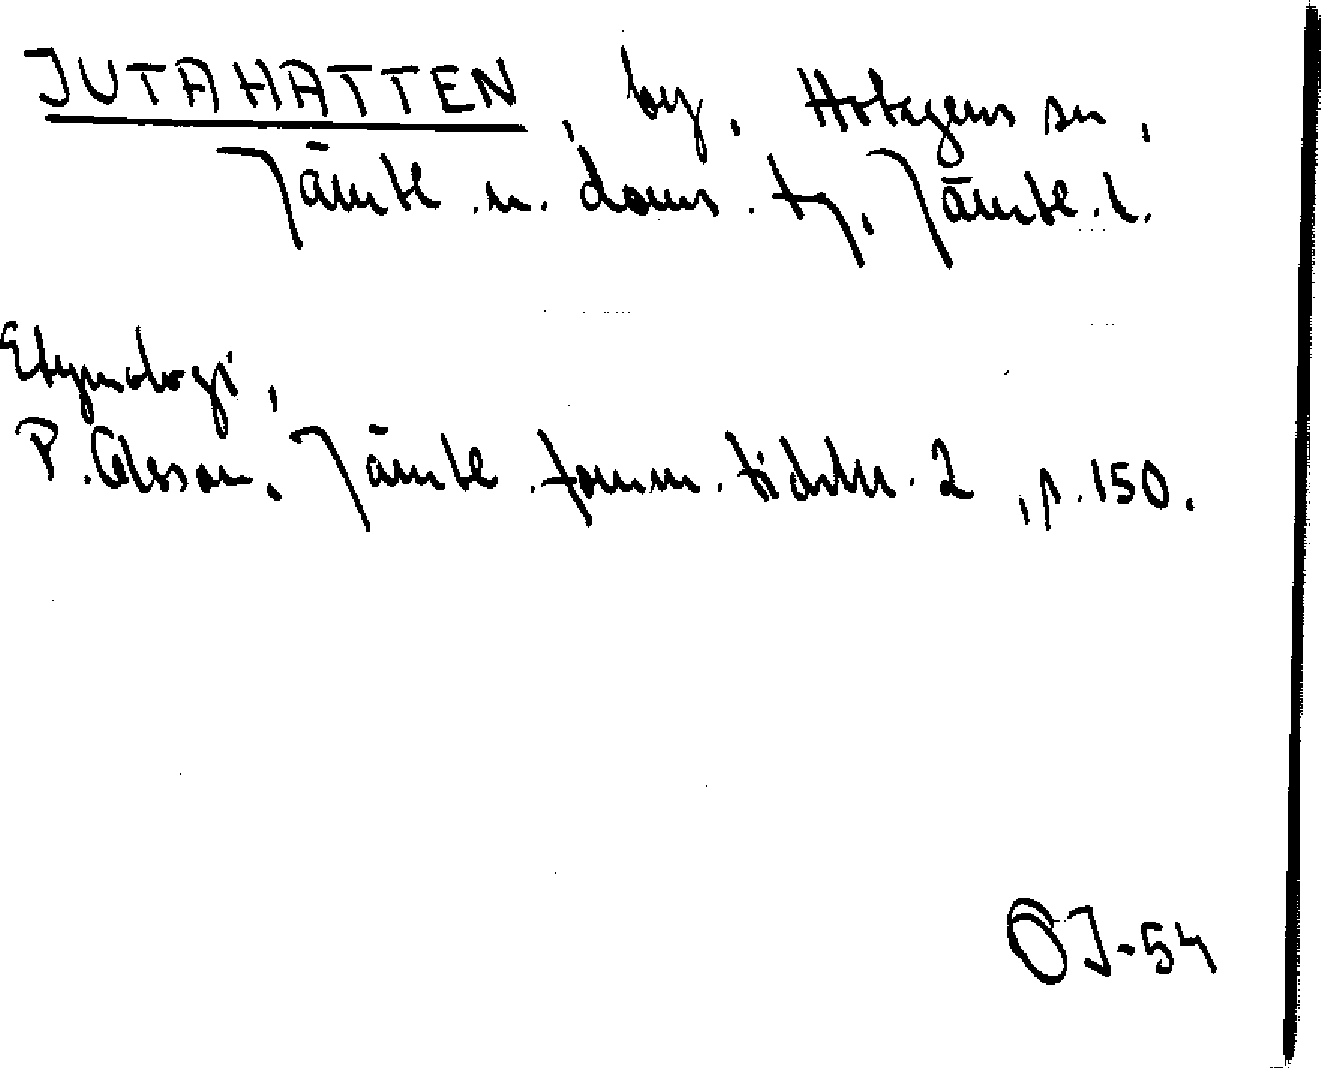 JUTAHATTEN, by, Hotagens sn,
Jämtl. n. doms. tg, Jämtl. l.
Etymologi,
P. Olsson, Jämtl. fornm. tidskr. 2, p. 150.
OJ-54